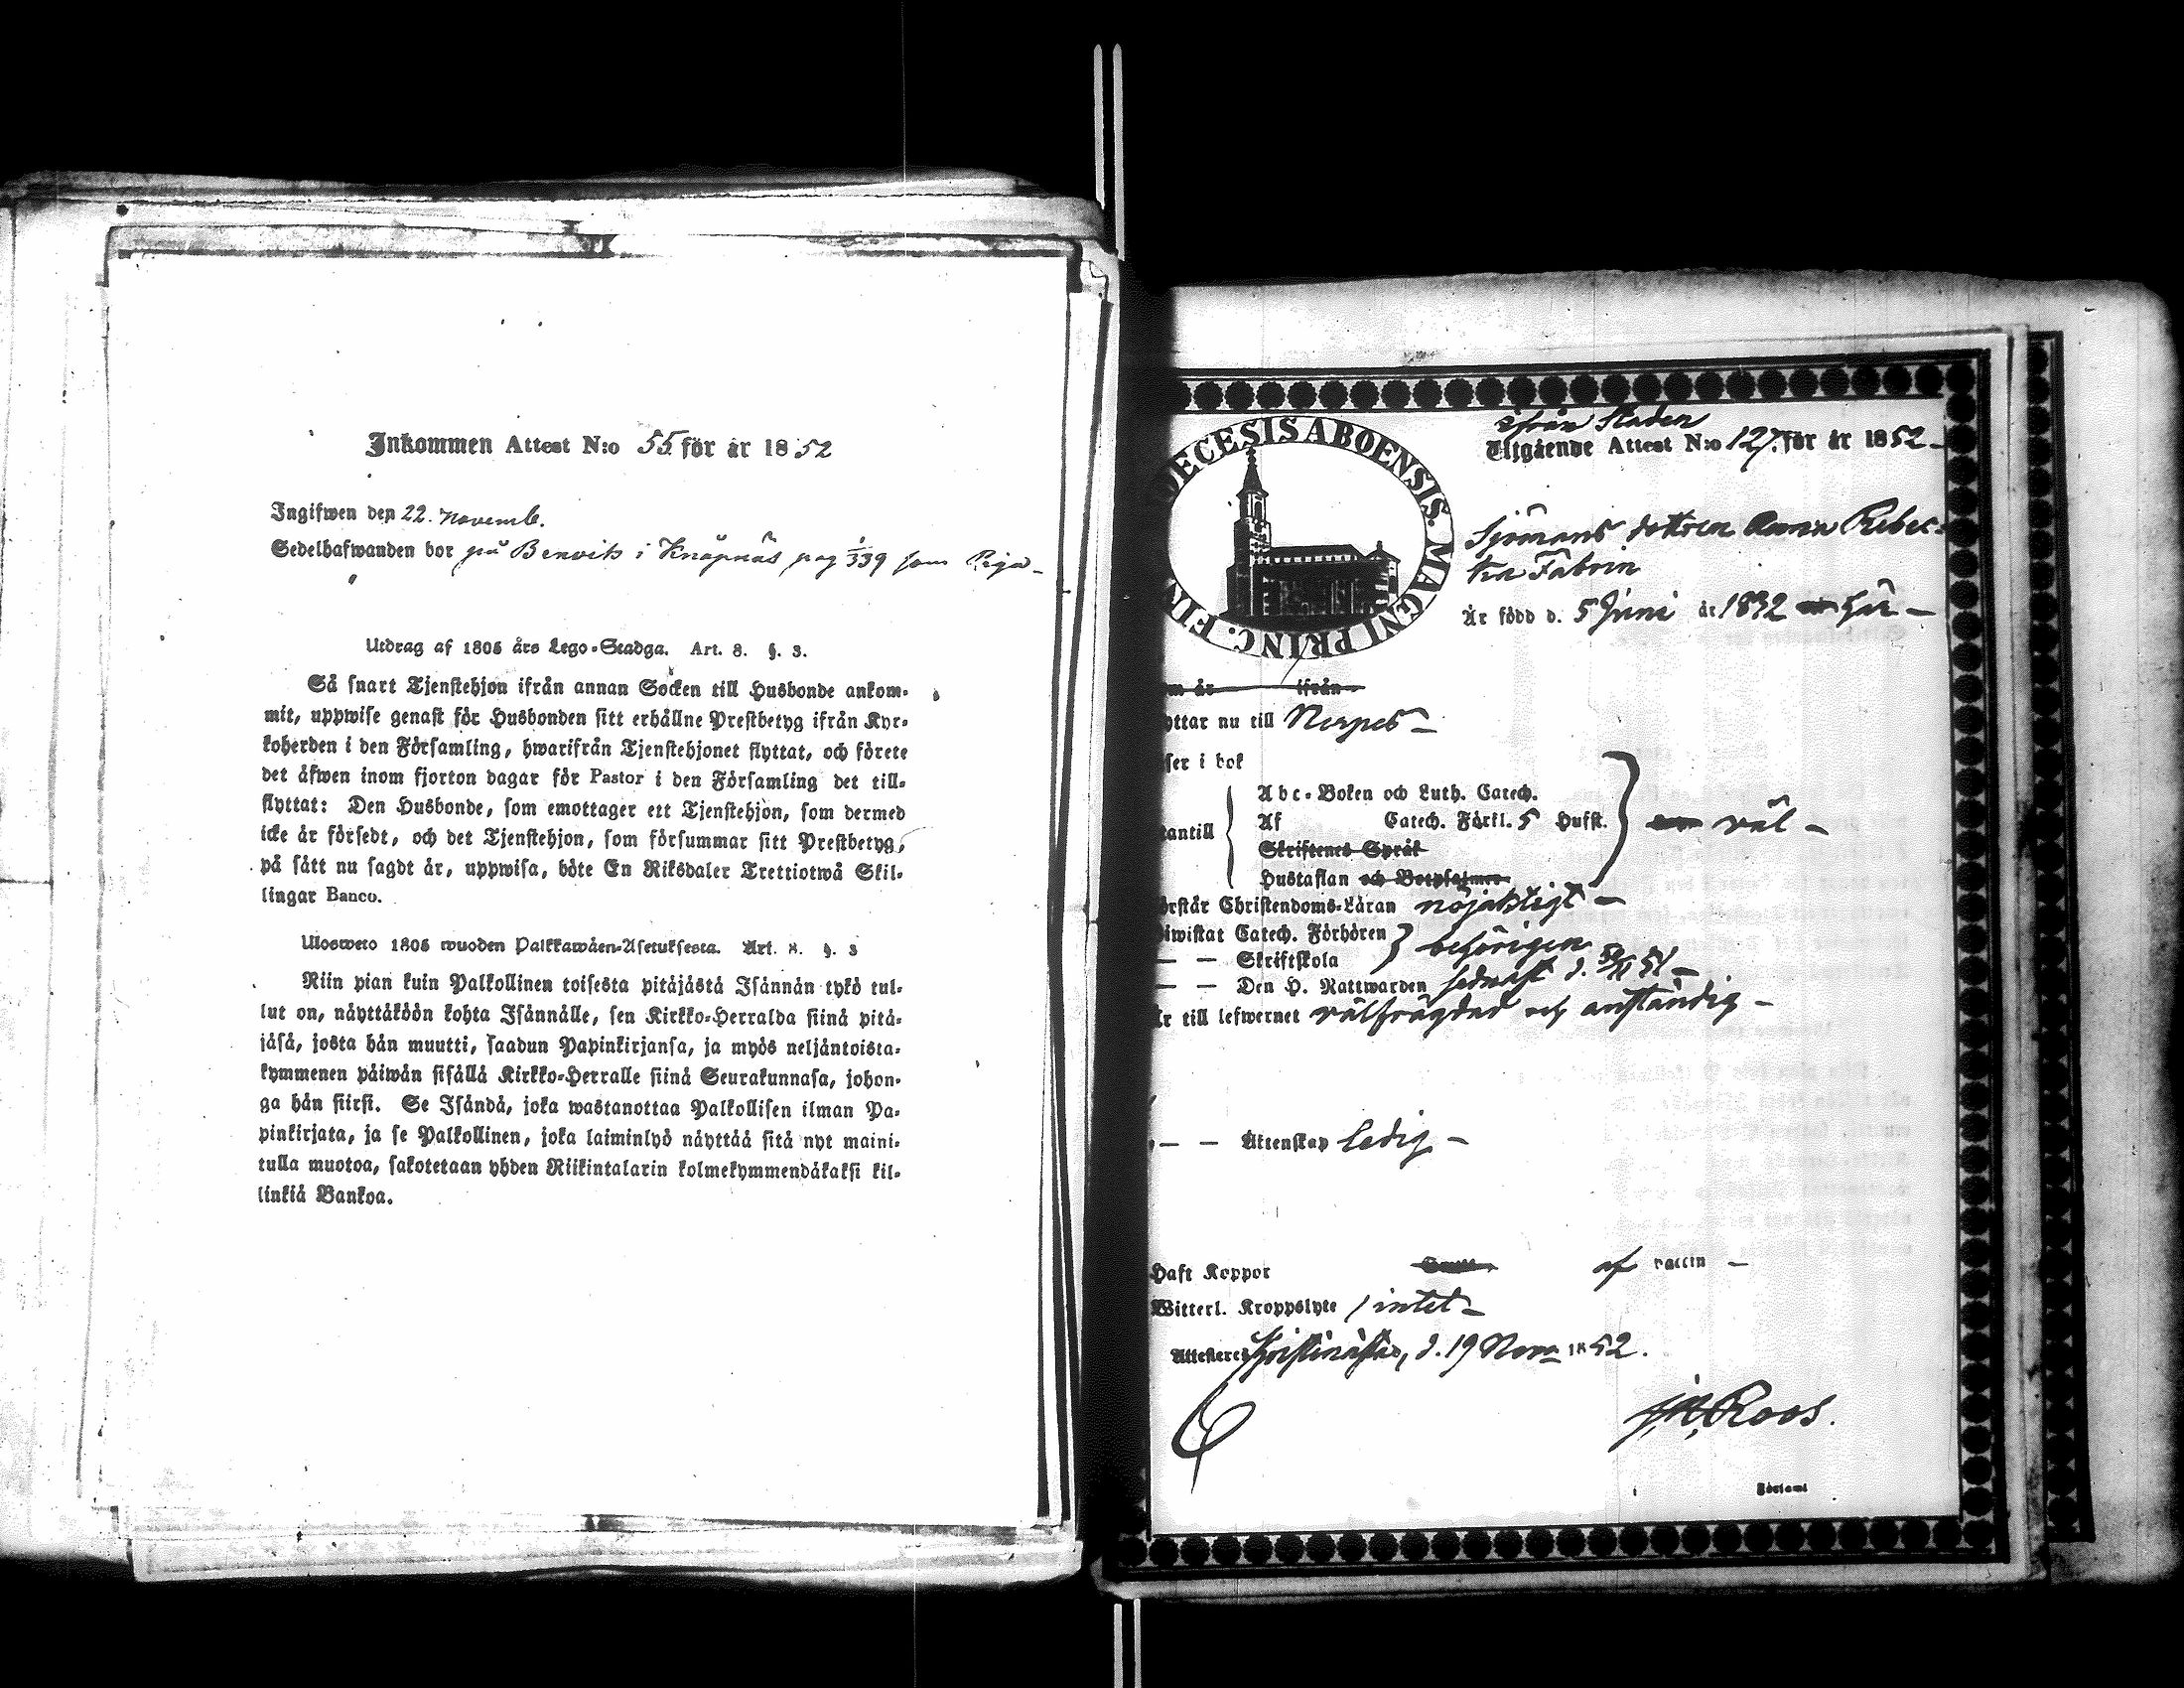 Inkommen Attest N:o 55 för år 1852
Ingifwen den 22. Novemb.
Sedelhafwanden bor på Benvik i Knåpnäs pag 339 som Piga
Utdrag af 1805 års Lego-Stadga. Art. 8. §. 3.
Så snart Tjenstehjon ifrån annan Socken till Husbonde ankom-
mit, uppwise genast för Husbonden sitt erhållne Prestbetyg ifrån Kyr-
koherden i den Församling, hwarifrån Tjenstehjonet flyttat, och förete
det äfwen inom fjorton dagar för Pastor i den Församling det till-
flyttat: Den Husbonde, som emottager ett Tjenstehjon, som dermed
icke är försedt, och det Tjenstehjon, som försummar sitt Prestbetyg,
på sätt nu sagdt är, uppwisa, böte En Riksdaler Trettiotwå Skil-
lingar Banco.
Ulosweto 1805 wuoden Palkkawäen-Asetuksesta. Art. 8. §. 3
Niin pian kuin Palkollinen toisesta pitäjästä Isännän tykö tul-
lut on, näyttäköön kohta Isännälle, sen Kirkko-Herralda siinä pitä-
jäsä, josta hän muutti, saadun Papinkirjansa, ja myös neljäntoista-
kymmenen päiwän sisällä Kirkko-Herralle siinä Seurakunnasa, johon-
ga hän siirsi. Se Isändä, joka wastanottaa Palkollisen ilman Pa-
pinkirjata, ja se Palkollinen, joka laiminlyö näyttää sitä nyt maini-
tulla muotoa, sakotetaan yhden Riikintalarin kolmekymmendäkaksi kil-
linkiä Bankoa.
DECESIS ABOENSIS. MAGNI PRINC. FIN
ifrån Staden
Utgående Attest N:o 127. för år 1852
Sjömans dottren Anna Rebec-
ka Fabrin
Är född d. 5 Juni år 1832 här
m år ifrån
yttar nu till Nerpes
ser i bok
Abc-Boken och Luth. Catech.
Af Catech. Förkl. 5 Hufst.
antill väl
Skriftenes Språk
Hustaflan och Botpsalmer
rstår Christendoms-Läran nöjaktigt
iwistat Catech. Förhören
— — Skriftskola behörigen
— — Den H. Nattwarden sednast d. 51
r till lefwernet välfrägdad och anständig
— — Äktenskap ledig
Haft Koppor af vaccin
Witterl. Kroppslyte intet
Attesteres Kristinestad, d. 19 Nov 1852.
Roos.